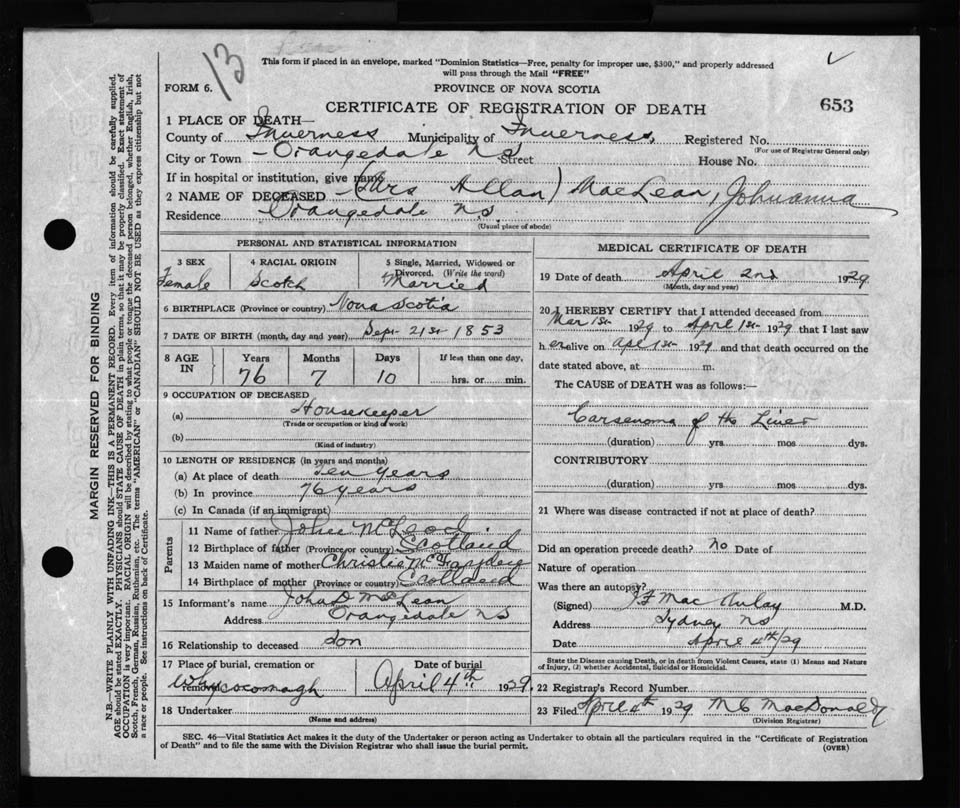 13
This form if placed in an envelope, marked "Dominion Statistics—Free, penalty for improper use, $300," and properly addressed
will pass through the Mail "FREE"
FORM 6.
PROVINCE OF NOVA SCOTIA
CERTIFICATE OF REGISTRATION OF DEATH
653
1 PLACE OF DEATH—
County of Inverness Municipality of Inverness, Registered No.
(For use of Registrar General only)
City or Town Orangedale NS Street House No.
If in hospital or institution, give name
2 NAME OF DECEASED (Mrs Allan) MacLean, Johnanna
Residence Orangedale N.S.
(Usual place of abode)
PERSONAL AND STATISTICAL INFORMATION
3 SEX Female
4 RACIAL ORIGIN Scotch
5 Single, Married, Widowed or
Divorced. (Write the word)
Married
6 BIRTHPLACE (Province or country) Nova Scotia
7 DATE OF BIRTH (month, day and year) Sept 21st 1853
8 AGE IN
Years Months Days If less than one day,
76 7 10 hrs. or min.
9 OCCUPATION OF DECEASED
(a) Housekeeper
(Trade or occupation or kind of work)
(b)
(Kind of industry)
10 LENGTH OF RESIDENCE (in years and months)
(a) At place of death Ten years
(b) In province 76 years
(c) In Canada (if an immigrant)
Parents
11 Name of father John McLeod
12 Birthplace of father (Province or country) Scotland
13 Maiden name of mother Christie
14 Birthplace of mother (Province or country) Scotland
15 Informant's name John D McLean
Address Orangedale NS
16 Relationship to deceased son
17 Place of burial, cremation or
removal Whycocomagh
Date of burial
April 4th 1929.
18 Undertaker
(Name and address)
MEDICAL CERTIFICATE OF DEATH
19 Date of death April 2nd 1929
(Month, day and year)
20 I HEREBY CERTIFY that I attended deceased from
Mar 1st 1929 to April 1st 1929 that I last saw
her alive on Apl 1st 1929 and that death occurred on the
date stated above, at m.
The CAUSE of DEATH was as follows:—
Carsenoma of the Liver
(duration) yrs. mos. dys.
CONTRIBUTORY
(duration) yrs. mos. dys.
21 Where was disease contracted if not at place of death?
Did an operation precede death? no Date of
Nature of operation
Was there an autopsy?
(Signed) MacAulay M.D.
Address Sydney NS
Date April 4th/29
State the Disease causing Death, or in death from Violent Causes, state (1) Means and Nature
of Injury, (2) whether Accidental, Suicidal or Homicidal.
22 Registrar's Record Number
23 Filed April 4th 1929 M C MacDonald
(Division Registrar)
SEC. 46—Vital Statistics Act makes it the duty of the Undertaker or person acting as Undertaker to obtain all the particulars required in the "Certificate of Registration
of Death" and to file the same with the Division Registrar who shall issue the burial permit.
(OVER)
MARGIN RESERVED FOR BINDING
N.B.—WRITE PLAINLY WITH UNFADING INK—THIS IS A PERMANENT RECORD. Every item of information should be carefully supplied.
AGE should be stated EXACTLY. PHYSICIANS should STATE CAUSE OF DEATH in plain terms, so that it may be properly classified. Exact statement of
OCCUPATION is very important. RACIAL ORIGIN will be described by stating to what people or tongue the deceased person belonged, whether English, Irish,
Scotch, French, German, Russian, Ruthenian, etc. The terms "AMERICAN" or "CANADIAN" SHOULD NOT BE USED as they express citizenship but not
a race or people. See instructions on back of Certificate.